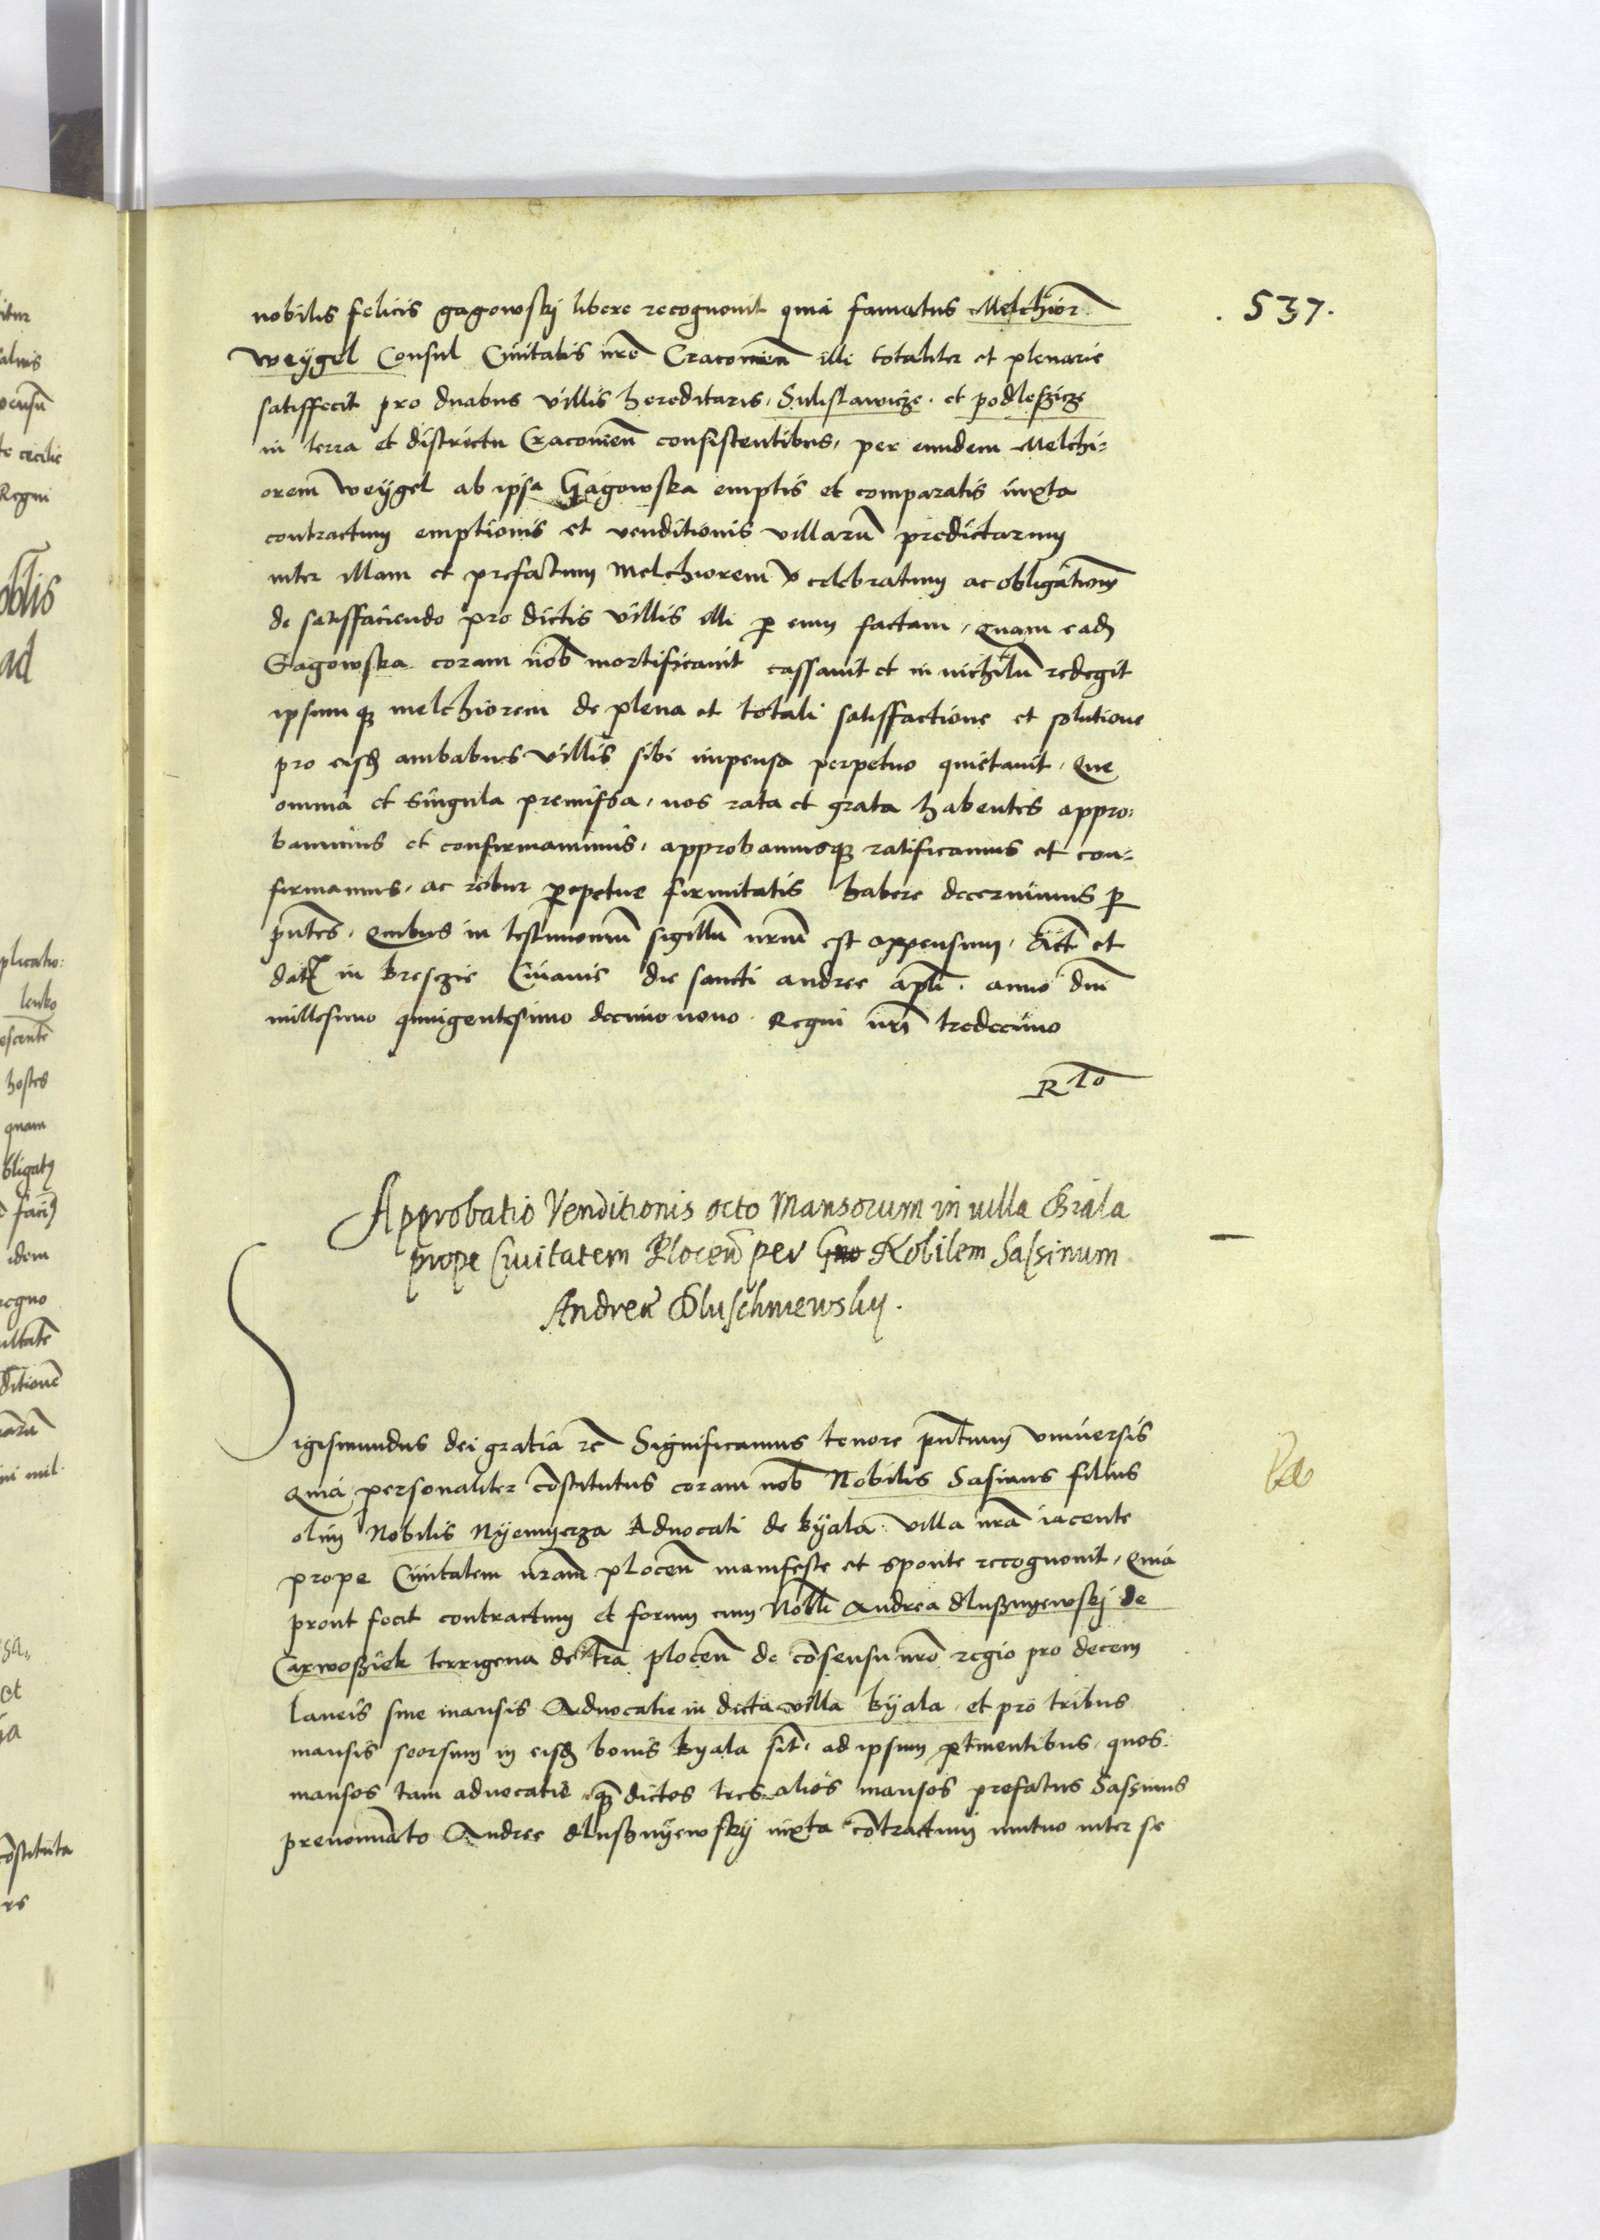 . 537.
nobilis felicis gagowskj libere recognouit quia famatus Melchior
weÿgel Consul Ciuitatis nrẽ Cracouieñ illi totaliter et plenarie
satisfecit pro duabus villis hereditarijs, Sulislawicze. et podleszicze
in terra et districtu Cracouieñ consistentibus, per eundem Melchi-
orem weÿgel ab ipsa Gagowska emptis et comparatis iuxta
contractum emptionis et venditionis villarũ predictarum
inter illam et prefatum Melchiorem celebratum ac obligationem
de satisfaciendo pro dictis villis illi p eum factam, Quam eadẽ
Gagowska coram nob mortificauit cassauit et in nichilũ redegit
ipsumqz melchiorem de plena et totali satisfactione et solutione
pro eisdẽ ambabus villis sibi impensa perpetuo quietauit, Que
omnia et singula premissa, nos rata et grata habentes appro-
bauimus et confirmauimus, approbamusqz ratificamus et con-
firmamus, ac robur perpetue firmitatis habere decernimus p
pñtes, Quibus in testimoniũ sigillũ nrũm est appensum, Actũ et
datũ in Bresczie Cuiauie die sancti andree apli. anno dni
millesimo quingentesimo decimo nono. Regni nri tredecimo
Rlo
Approbatio Venditionis octo Mansorum in uilla Biala
prope Ciuitatem Ploceñ per Nobilem Sassinum
Andreæ Dluschniewskij.
Sigismundus dei gratia rẽ Significamus tenore pñtium vniuersis
Quia personaliter cõstitutus coram nob Nobilis Sasinus filius
olim Nobilis Nyemyerza Aduocati de Byala villa nrã iacente
prope Ciuitatem nrãm ploceñ manifeste et sponte recognouit, Quia
prout fecit contractum et forum cum Nobli Andrea dlusznyewskj de
Carwosziek terrigena de trã ploceñ de cõsensu nrõ regio pro decem
laneis siue mansis Aduocatie in dicta villa Byala et pro tribus
mansis seorsum in eisdẽ bonis Byala sitis ad ipsum ptinentibus, quos
mansos tam aduocatie qz dictos tres alios mansos prefatus Sassinus
prenominato Andree dlusznyewskj iuxta cõtractum mutuo inter se